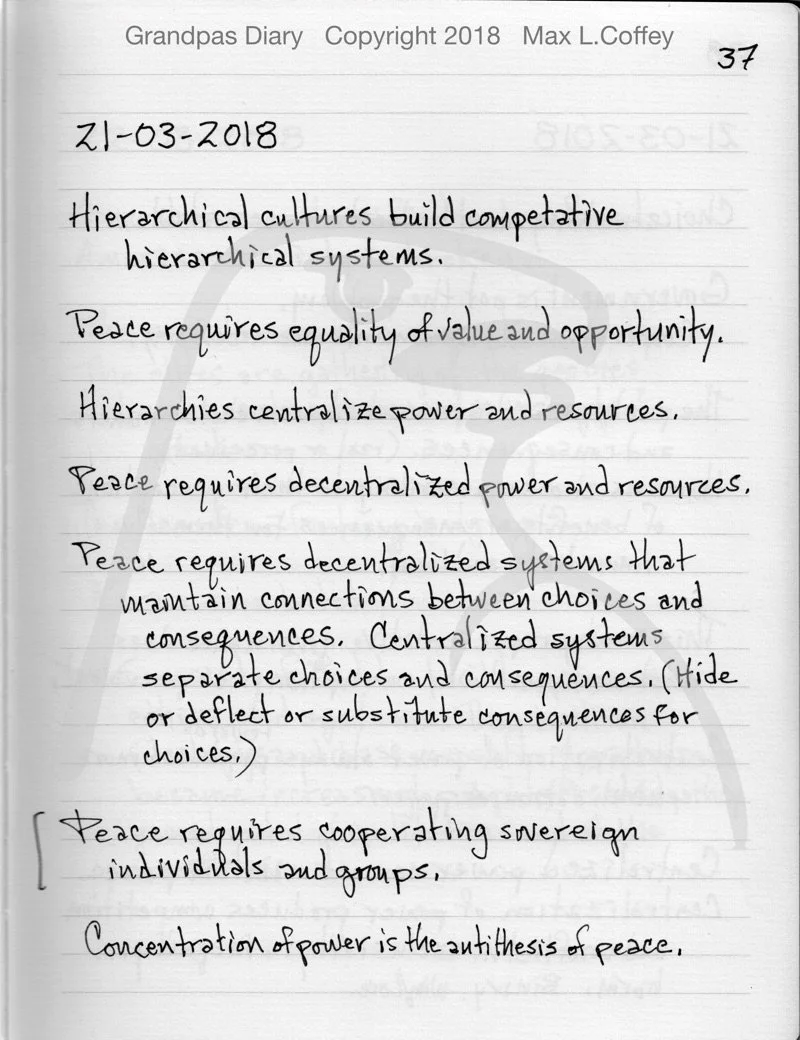 Grandpas Diary Copyright 2018 Max L.Coffey
37
21-03-2018
Hierarchical cultures build competative
hierarchical systems.
Peace requires equality of value and opportunity.
Hierarchies centralize power and resources.
Peace requires decentralized power and resources.
Peace requires decentralized systems that
maintain connections between choices and
consequences. Centralized systems
separate choices and consequences. (Hide
or deflect or substitute consequences for
choices.)
Peace requires cooperating sovereign
individuals and groups.
Concentration of power is the antithesis of peace.